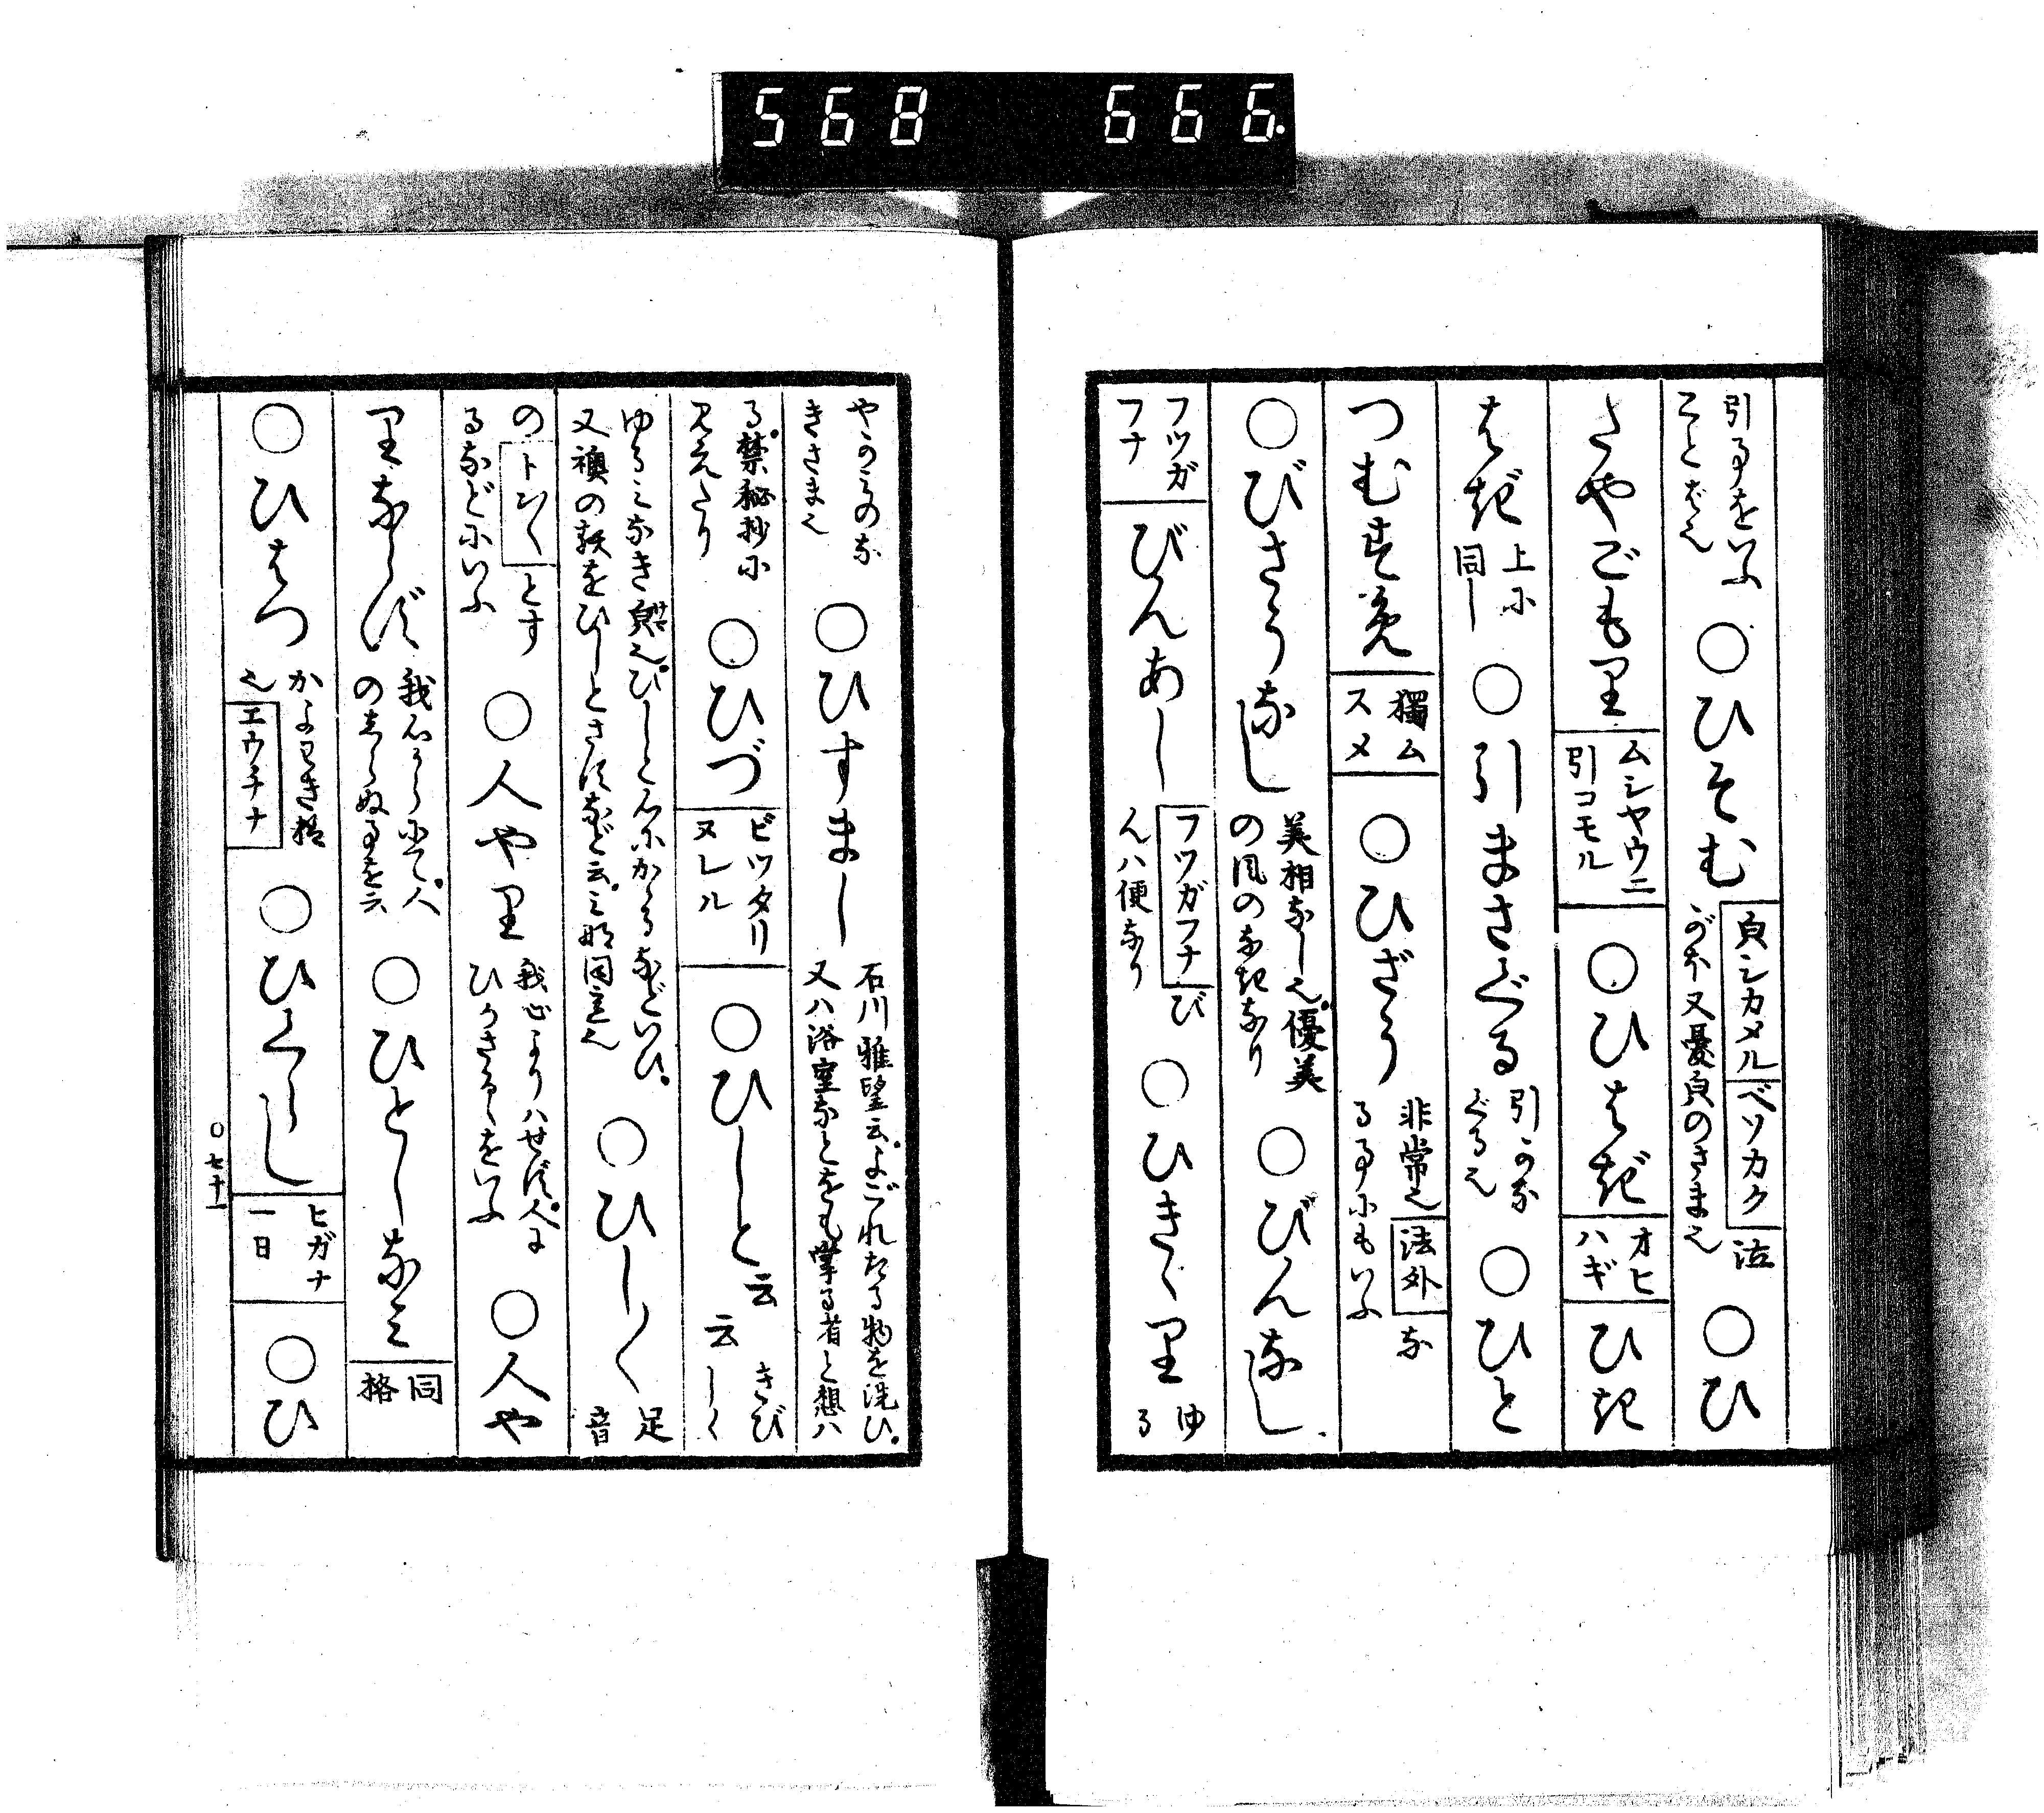 568 666.
引事をいふ
ことば也 ○ひそむ 貞シカメル ベソカク 泣
がほ又憂貞のさま也 ○ひ
たやごもり ムシヤウニ
引コモル ○ひはぎ オヒ
ハギ ひき
はぎ 上に
同し ○引まさぐる 引かな
ぐる也 ○ひと
つむすめ 獨ム
スメ ○ひざう 非常也 法外 な
る事にもいふ
○びさうなし 美相なし也。優美
の風のなきなり ○びんなし
フツガ
フナ びんあし フツガフナ び
んハ便なり ○ひきゝり ゆ
る
やかゝのな
きさま也 ○ひすまし 石川雅望云。よごれたる物を洗ひ。
又ハ浴室なとをも掌る者と想ハ
る。禁秘抄に
見えたり ○ひづ ビツタリ
ヌレル ○ひしと云云 きび
しく
ゆるみなき貞也。ひしと心にかゝるなどいひ。
又襖の鋏をひしとさすなど云。み好同意也 ○ひし〱 足
音
の トン〱 とす
るなどにいふ ○人やり 我心よりハせず。人に
ひかさるゝをいふ ○人や
りならず 我心からにて。人
のしらぬ事を云 ○ひとしなみ 同
格
○ひはつ かよわき様
也 エウチナ ○ひくらし ヒガナ
一日 ○ひ
○七十一